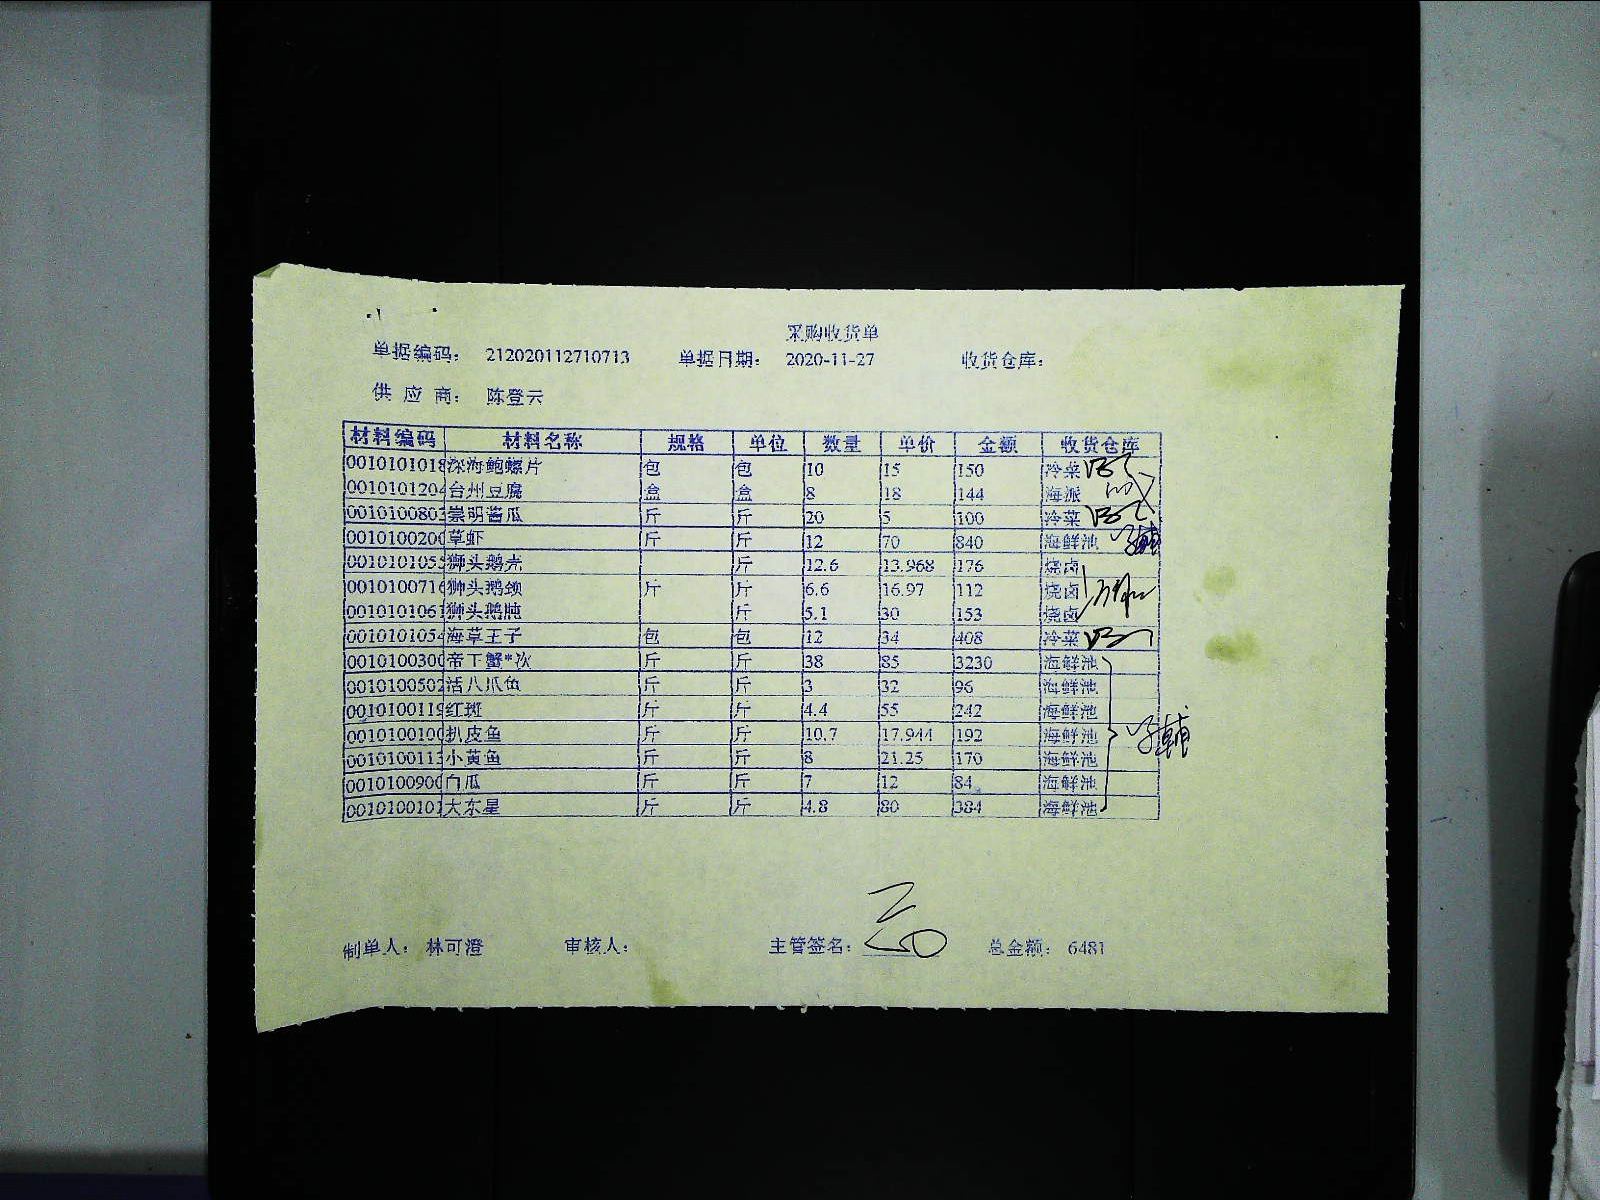 采购收货单
单据编码： 212020112710713 单据日期： 2020-11-27 收货仓库：
供 应 商： 陈登云
材料编码 材料名称 规格 单位 数量 单价 金额 收货仓库
0010101018 深海鲍螺片 包 包 10 15 150 冷菜
0010101204 台州豆腐 盒 盒 8 18 144 海派
001010080 崇明酱瓜 斤 斤 20 5 100 冷菜
001010020 草虾 斤 斤 12 70 840 海鲜池
001010105 狮头鹅壳 斤 12.6 13.968 176 烧卤
001010071 狮头鹅颈 斤 斤 6.6 16.97 112 烧卤
001010106 狮头鹅肫 斤 5.1 30 153 烧卤
001010105 海草王子 包 包 12 34 408 冷菜
001010030 帝王蟹*次 斤 斤 38 85 3230 海鲜池
001010050 活八爪鱼 斤 斤 3 32 96 海鲜池
001010011 红斑 斤 斤 4.4 55 242 海鲜池
001010010 扒皮鱼 斤 斤 10.7 17.944 192 海鲜池
001010011 小黄鱼 斤 斤 8 21.25 170 海鲜池
001010090 门瓜 斤 斤 7 12 84 海鲜池
001010010 大东星 斤 斤 4.8 80 384 海鲜池
制单人： 林可澄 审核人： 主管签名： 云 总金额： 6481